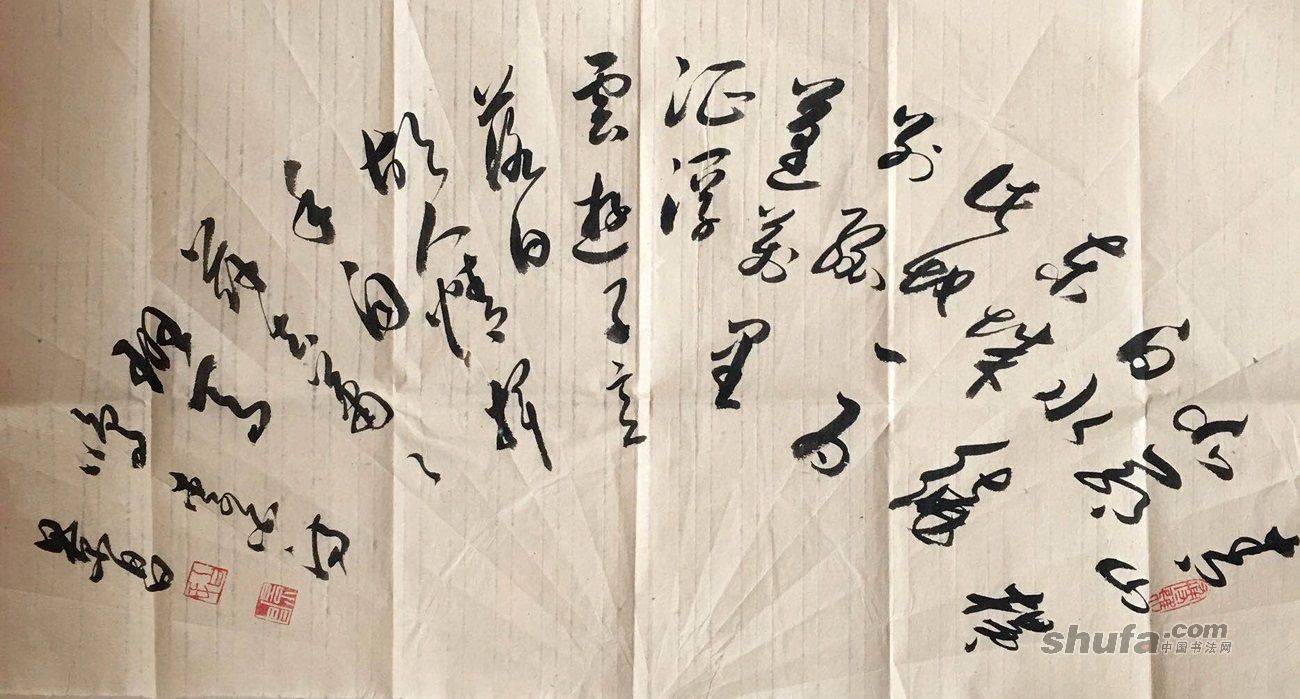 青山横
北郭
白水繞
东城
此地一为
别孤
蓬萬里
征浮
雲遊子意
落日
故人情揮
手自
兹去萧〻
班马
鸣
shufa.com
中国书法网